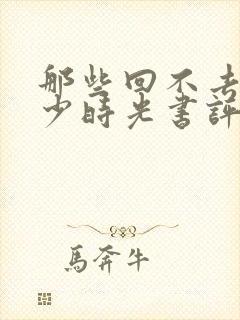 那些回不去
少時光書評
馬奔牛